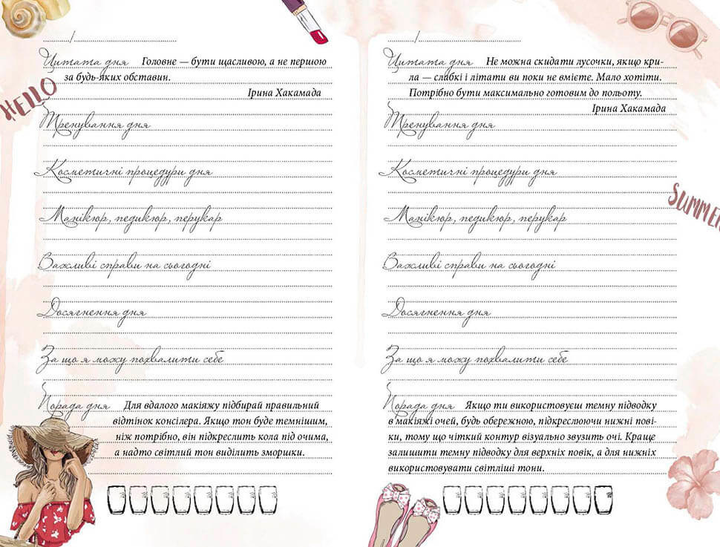 ............/............
Цитата дня Головне — бути щасливою, а не першою
за будь-яких обставин.
Ірина Хакамада
HELLO
Тренування дня
Косметичні процедури дня
Манікюр, педикюр, перукар
Важливі справи на сьогодні
Досягнення дня
За що я можу похвалити себе
Порада дня Для вдалого макіяжу підбирай правильний
відтінок консілера. Якщо тон буде темнішим,
ніж потрібно, він підкреслить кола під очима,
а надто світлий тон виділить зморшки.
............/............
Цитата дня Не можна скидати лусочки, якщо кри-
ла — слабкі і літати ви поки не вмієте. Мало хотіти.
Потрібно бути максимально готовим до польоту.
Ірина Хакамада
Тренування дня
Косметичні процедури дня
SUMMER
Манікюр, педикюр, перукар
Важливі справи на сьогодні
Досягнення дня
За що я можу похвалити себе
Порада дня Якщо ти використовуєш темну підводку
в макіяжі очей, будь обережною, підкреслюючи нижні пові-
ки, тому що чіткий контур візуально звузить очі. Краще
залишити темну підводку для верхніх повік, а для нижніх
використовувати світліші тони.